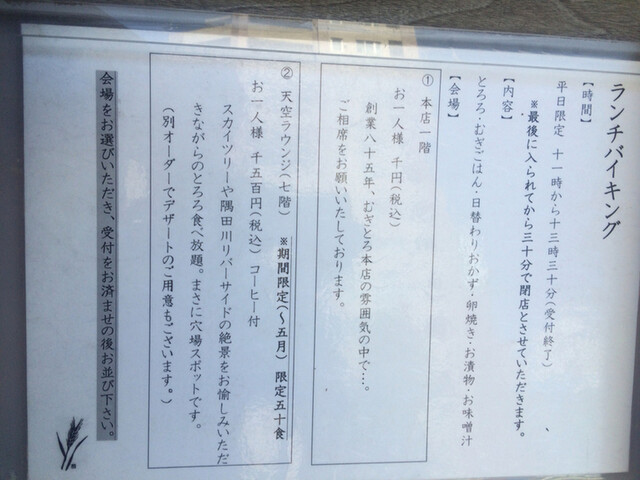 ランチバイキング
【時間】
平日限定 十一時から十三時三十分(受付終了)
※最後に入られてから三十分で閉店とさせていただきます。
【内容】
とろろ・むぎごはん・日替わりおかず・卵焼き・お漬物・お味噌汁
【会場】
① 本店一階
お一人様 千円(税込)
創業八十五年、むぎとろ本店の雰囲気の中で…。
ご相席をお願いいたしております。
② 天空ラウンジ(七階) ※期間限定(～五月) 限定五十食
お一人様 千五百円(税込) コーヒー付
スカイツリーや隅田川リバーサイドの絶景をお愉しみいただ
きながらのとろろ食べ放題。まさに穴場スポットです。
(別オーダーでデザートのご用意もございます。)
会場をお選びいただき、受付をお済ませの後お並び下さい。